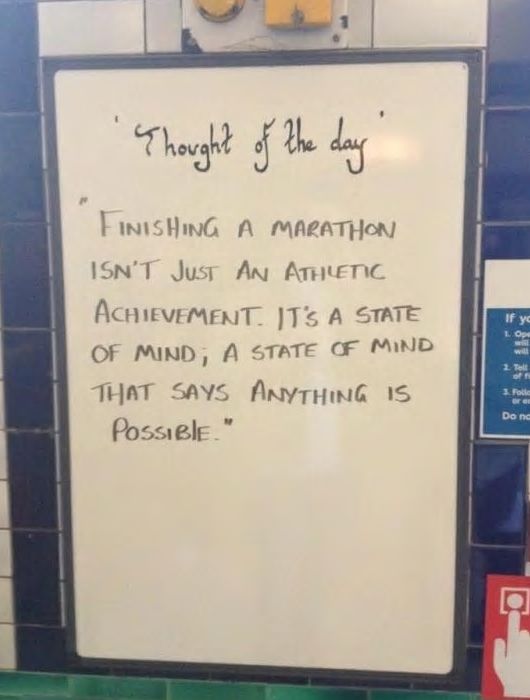 'Thought of the day'
"FINISHING A MARATHON
ISN'T JUST AN ATHLETIC
ACHIEVEMENT. IT'S A STATE
OF MIND; A STATE OF MIND
THAT SAYS ANYTHING IS
POSSIBLE."
If yo
1. Ope
will
will
2. Tell
of fi
3. Follo
or e
Do no